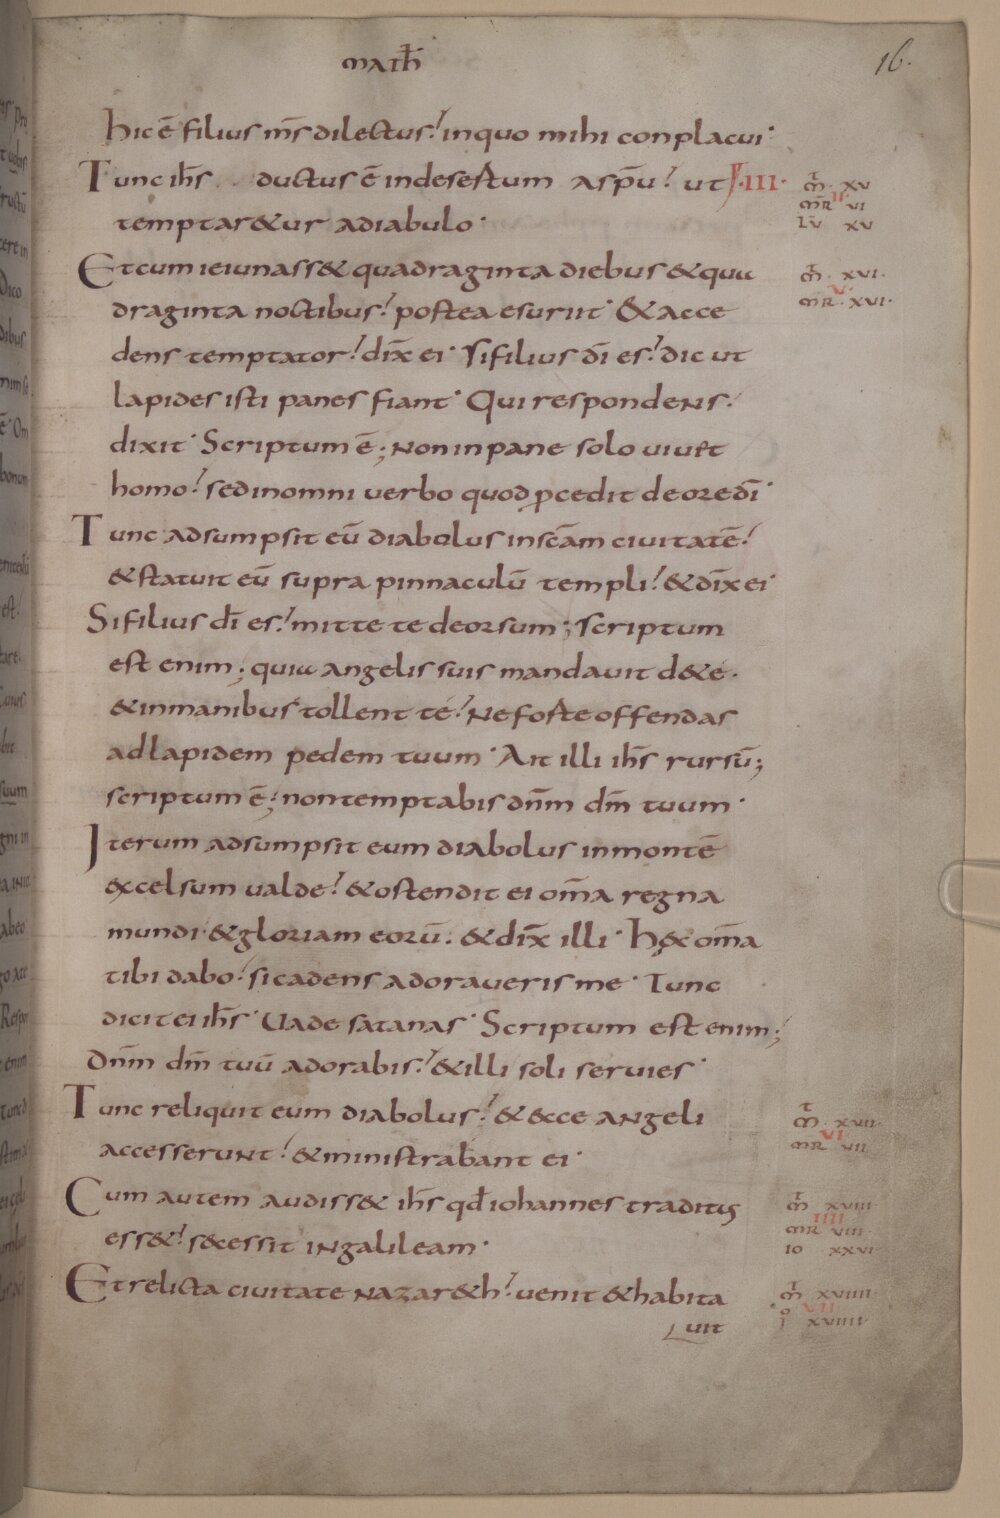 math̄
16.
hic ē filius m̄s dilectus! inquo mihi conplacui·
Tunc ih̄s ductus ē indesestum asp̄u! ut ·III·
temptar&ur adiabulo·
m̄t · xv
mR̄ vi
II
Lv̄ xv
Et cum ieiunass& quadraginta diebus & qua
draginta noctibus! postea esuriit· & acce
m̄t · xvi·
v·
mR · xvi·
dens temptator! dix̄ ei· Si filius dī es! dic ut
lapides isti panes fiant· Qui respondens!
dixit· Scriptum ē; non in pane solo uiuit
homo! sed inomni uerbo quod ꝓcedit de ore dī·
Tunc adsumpsit eū diabolus inscām ciuitatē!
& statuit eū supra pinnaculū templi! & dix̄ ei·
Si filius dī es! mitte te deorsum; scriptum
est enim; quia angelis suis mandauit d& é·
& inmanibus tollent té! Ne forte offendas
ad lapidem pedem tuum· Ait illi ih̄s rursū;
scriptum ē; non temptabis dn̄m dm̄ tuum·
Iterum adsumpsit eum diabolus inmontē
excelsum ualde! & ostendit ei om̄a regna
mundi· & gloriam eorū. & dix̄ illi· hęc om̄a
tibi dabo! si cadens adoraueris me· Tunc
dicit ei ih̄s· Uade satanas· Scriptum est enim;
Dn̄m dm̄ tuū adorabis! & illi soli seruies·
Tunc reliquit eum diabolus! & ecce angeli
accesserunt! & ministrabant ei·
m̄t · xvii·
VI
mR vii·
Cum autem audiss& ih̄s qđ iohannes traditus
ess&! secessit in galileam·
m̄t xviii·
IIII
mR viii·
io xxvi·
Et relicta ciuitate nazar&h! uenit & habita
uit
m̄t xviiii·
VII
xviiii·